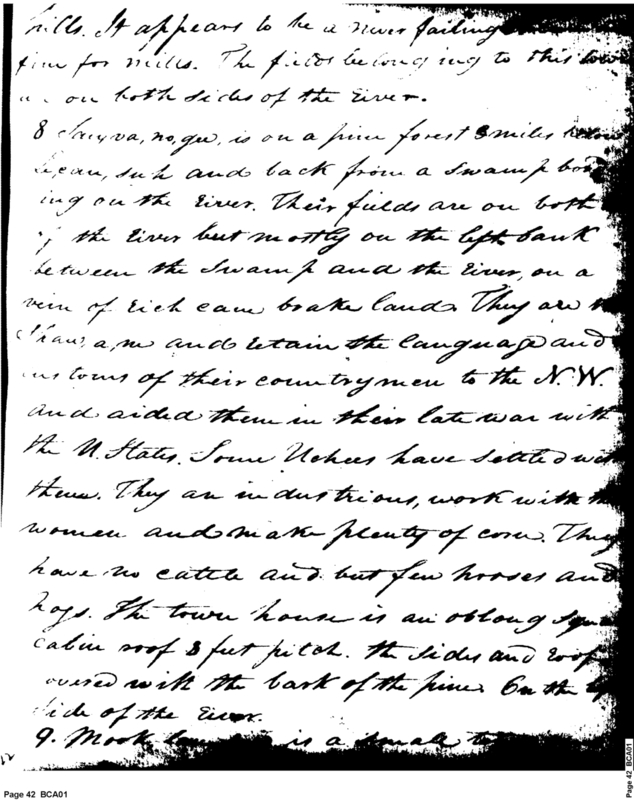 hills. It appears to be a river failing
fine for mills. The fields belonging to this town
on both sides of the river.
8 Sauva, no, gee, is on a pine forest 3 miles below
and back from a swamp bord
ing on the river. Their fields are on both
of the river but mostly on the left bank
between the swamp and the river, on a
vein of rich cane brake land. They are
Shaw, a, ne and retain the language and
customs of their countrymen to the N. W.
and aided them in their late war with
the U. States. Some Uchees have settled with
them. They are industrious, work with the
women and make plenty of corn. They
have no cattle and but few horses and
hogs. The town house is an oblong square
cabin roof 8 feet pitch. the sides and roof
covered with the bark of the pine. On the
side of the river.
9. is a small
Page 42 BCA01
Page 42_BCA01